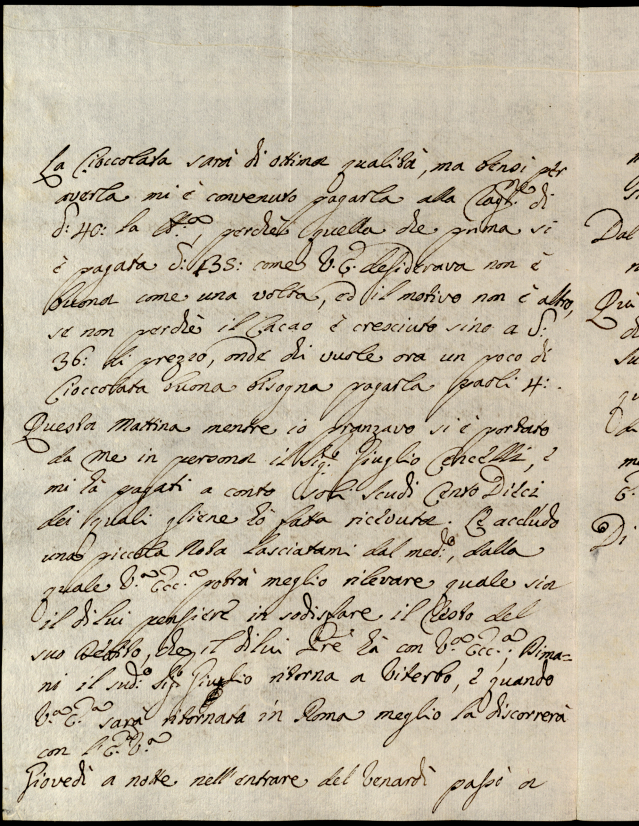 La Cioccolata sarà di ottima qualità, ma bensi per
averla mi è convenuto pagarla alla di
40: la perchè quella che prima si
è pagata 35: come V. E. desiderava non è
buona come una volta, ed il motivo non è altro,
se non perchè il Cacao è cresciuto sino a
36: di prezzo, onde chi vuole ora un poco di
Cioccolata buona bisogna pagarla paoli 4:
Questa Mattina mentre io pranzavo si è portato
da me in persona il Sig.e Giuglio Cencelli, e
mi hà pagati a conto soli Scudi Cento Dieci
dei quali gliene hò fatta ricevuta. Le accludo
una piccola Nota lasciatami dal med.o, dalla
quale V.a Ecc.a potrà meglio rilevare quale sia
il di lui pensiere in sodisfare il resto del
suo debito, che il di lui Pre hà con V.a Ecc.a; Dima=
ni il sud.o Sig.e Giuglio ritorna a Viterbo, e quando
V.a E.a sarà ritornata in Roma meglio la discorrerà
con l'E.a V.a
Giovedì a notte nell'entrare del Venardì passò a
Dal
Di